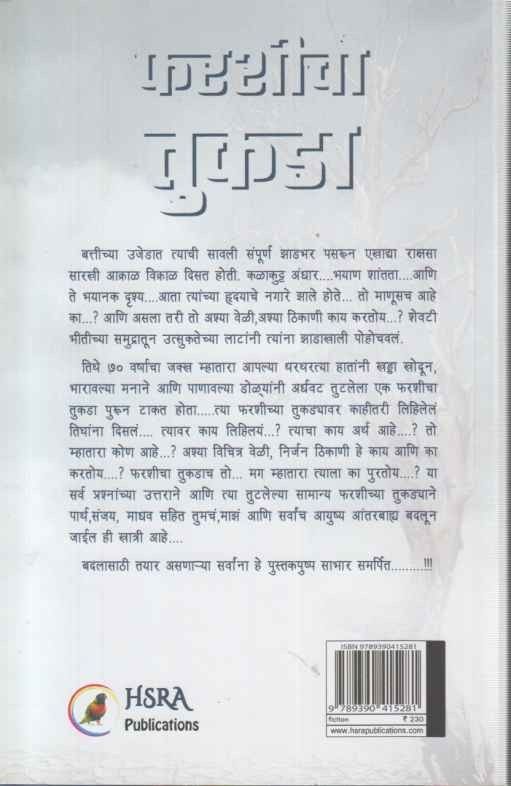 फरशीचा
तुकडा
बत्तीच्या उजेडात त्याची सावली संपूर्ण झाडभर पसरून एखाद्या राक्षसा
सारखी आक्राळ विक्राळ दिसत होती. काळाकुट्ट अंधार....भयाण शांतता....आणि
ते भयानक दृश्य....आता त्यांच्या हृदयाचे नगारे झाले होते... तो माणूसच आहे
का...? आणि असला तरी तो अश्या वेळी,अश्या ठिकाणी काय करतोय...? शेवटी
भीतीच्या समुद्रातून उत्सुकतेच्या लाटांनी त्यांना झाडाखाली पोहोचवलं.
तिथे ७० वर्षाचा जख्ख म्हातारा आपल्या थरथरत्या हातांनी खड्डा खोदून,
भारावल्या मनाने आणि पाणावल्या डोळ्यांनी अर्धवट तुटलेला एक फरशीचा
तुकडा पुरून टाकत होता.....त्या फरशीच्या तुकड्यावर काहीतरी लिहिलेलं
तिघांना दिसलं.... त्यावर काय लिहिलयं...? त्याचा काय अर्थ आहे....? तो
म्हातारा कोण आहे...? अश्या विचित्र वेळी, निर्जन ठिकाणी हे काय आणि का
करतोय....? फरशीचा तुकडाच तो... मग म्हातारा त्याला का पुरतोय....? या
सर्व प्रश्नांच्या उत्तराने आणि त्या तुटलेल्या सामान्य फरशीच्या तुकड्याने
पार्थ,संजय, माधव सहित तुमचं,माझं आणि सर्वांच आयुष्य आंतरबाह्य बदलून
जाईल ही खात्री आहे....
बदलासाठी तयार असणाऱ्या सर्वांना हे पुस्तकपुष्प साभार समर्पित.........!!!
ISBN 9789390415281
9 789390 415281
fiction ₹ 230
www.hsrapublications.com
HSRA
Publications